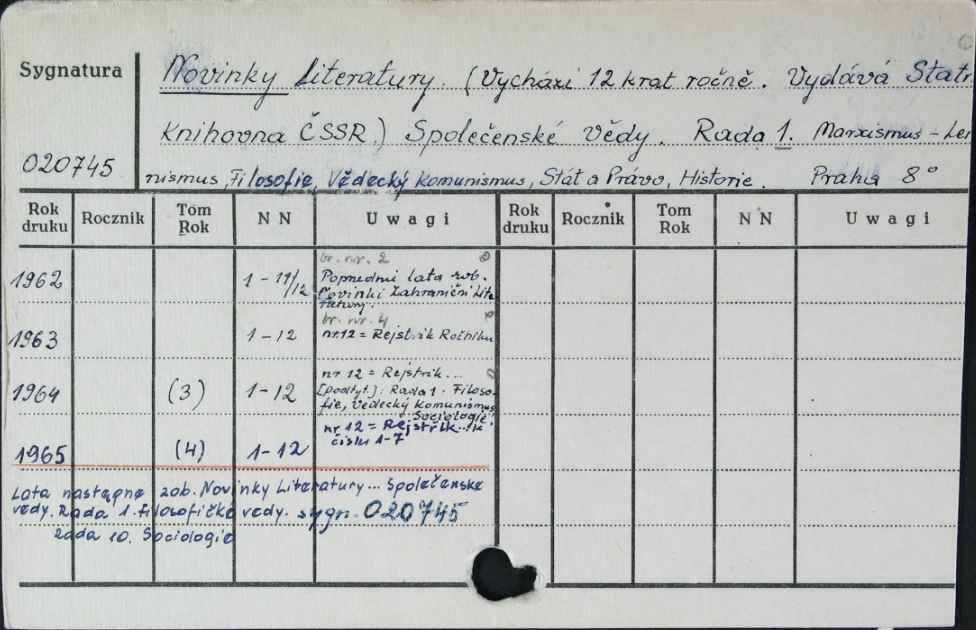 Sygnatura
Novinky Literatury. (Vychází 12 krat ročně. Vydává Statn
Knihovna ČSSR.) Společenské Vědy. Rada 1. Marxismus - Len
020745
nismus, Filosofie, Vědecký Komunismus, Stát a Právo, Historie. Praha 8°
Rok druku Rocznik Tom Rok NN Uwagi Rok druku Rocznik Tom Rok NN Uwagi
br. nr. 2
1962 1-11/12 Poprzedni lata zob.
Novinki Zahraniční Lite
ratury.
br. nr. 4
1963 1-12 nr. 12 = Rejstrik Ročniku
nr 12 = Rejstrik...
1964 (3) 1-12 [podtyt.]: Rada 1. Filoso-
fie, Vědecký Komunismus,
Sociologie.
nr 12 = Rejstřik...k
čislu 1-7
1965 (4) 1-12
Lata następne zob. Novinky Literatury... Společenske
vedy. Rada 1. Filosofičke vedy. sygn. 020745
Rada 10. Sociologie